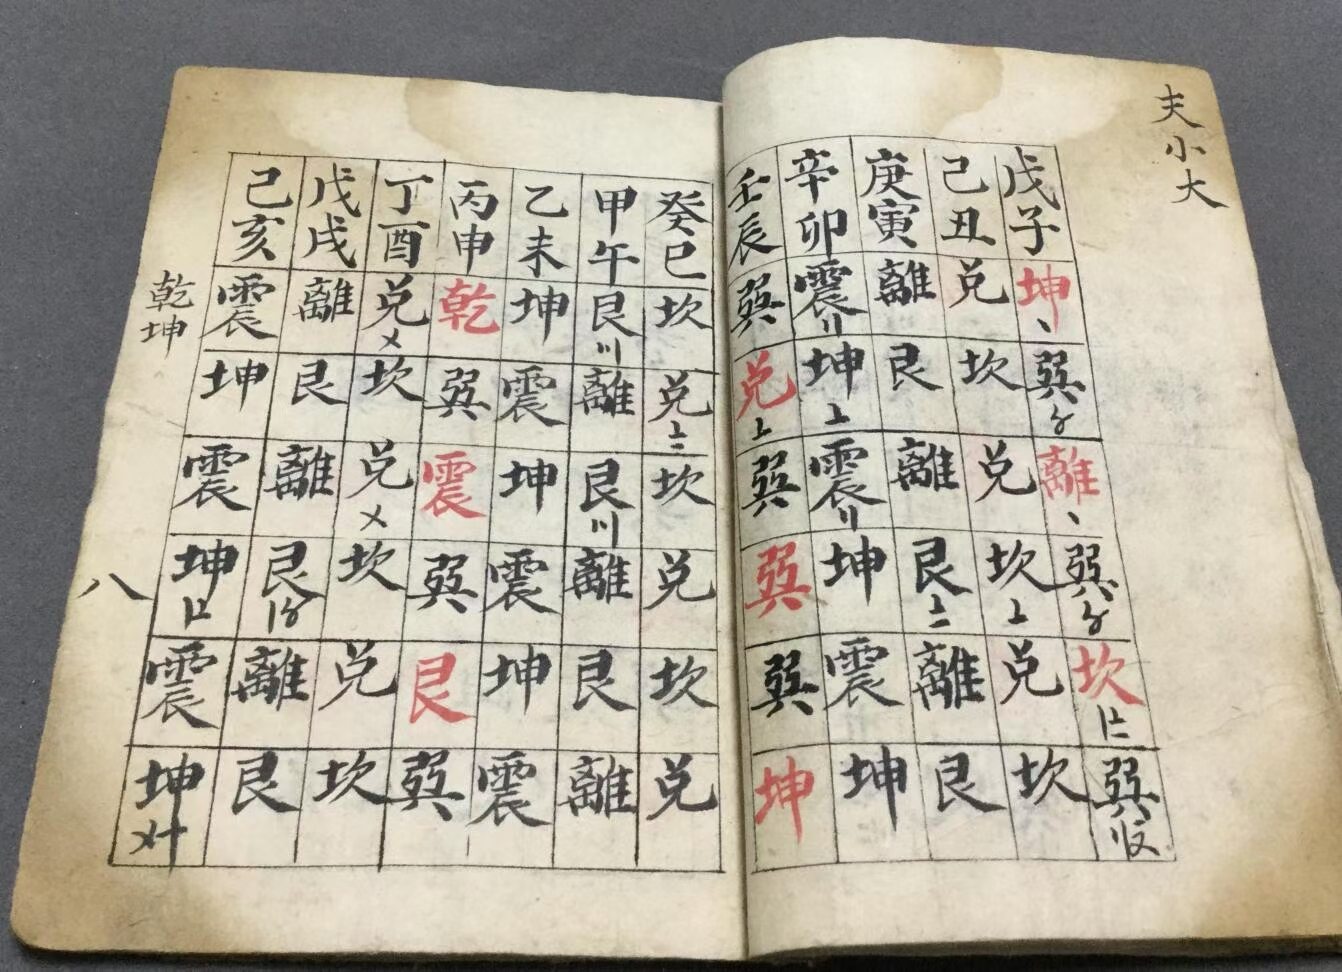 夫小大
戊子 坤 巽 離 巽 坎 巽
己丑 兑 坎 兑 坎 兑 坎
庚寅 離 艮 離 艮 離 艮
辛卯 震〢 坤 震〢 坤 震 坤
壬辰 巽 兑 巽 巽 巽 坤
癸巳 坎 兑 坎 兑 坎 兑
甲午 艮〣 離 艮〣 離 艮 離
乙未 坤 震 坤 震 坤 震
丙申 乾 巽 震 巽 艮 巽
丁酉 兑〤 坎 兑〤 坎 兑 坎
戊戌 離 艮 離 艮 離 艮
己亥 震 坤 震 坤 震 坤〤十
乾坤
八